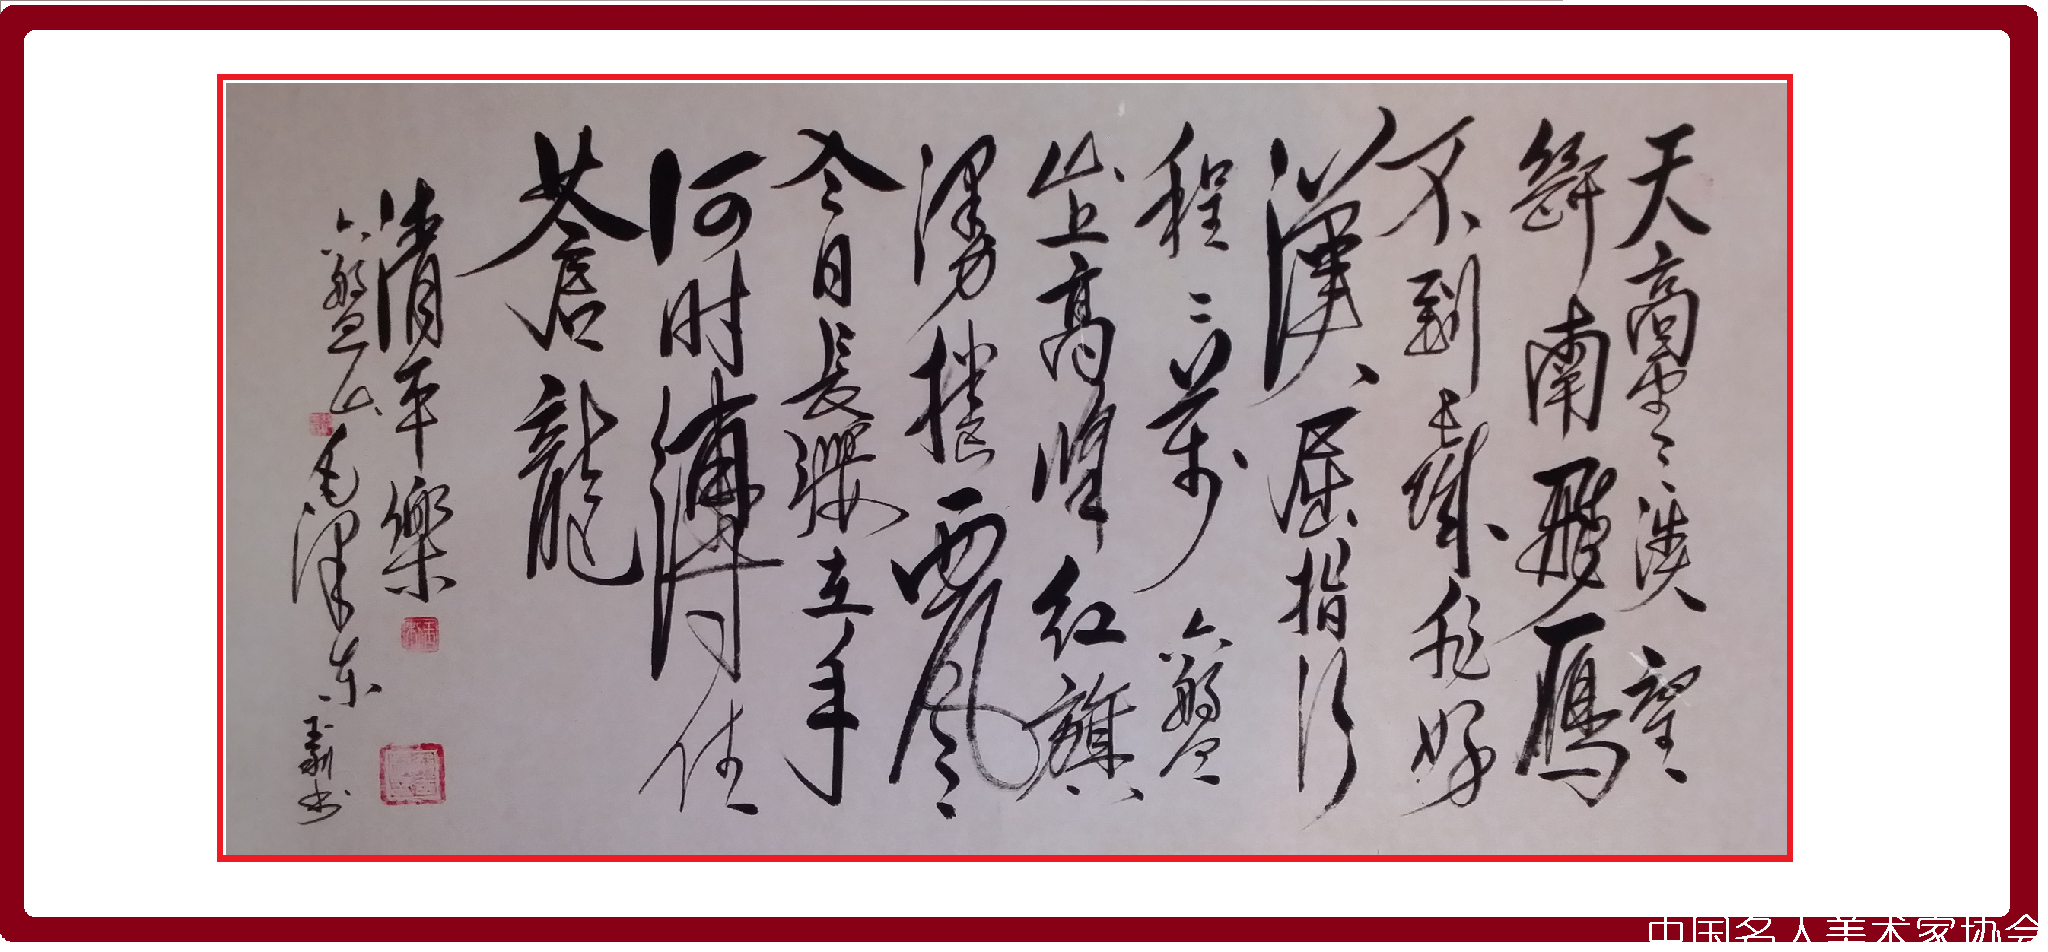 天高雲淡望
斷南飛鴈
不到長城非好
漢屈指行
程二萬六盤
山上高峰紅旗
漫捲西風
今日長纓在手
何时縛住
蒼龍
清平樂
六盤山毛澤东书
中国名人美术家协会